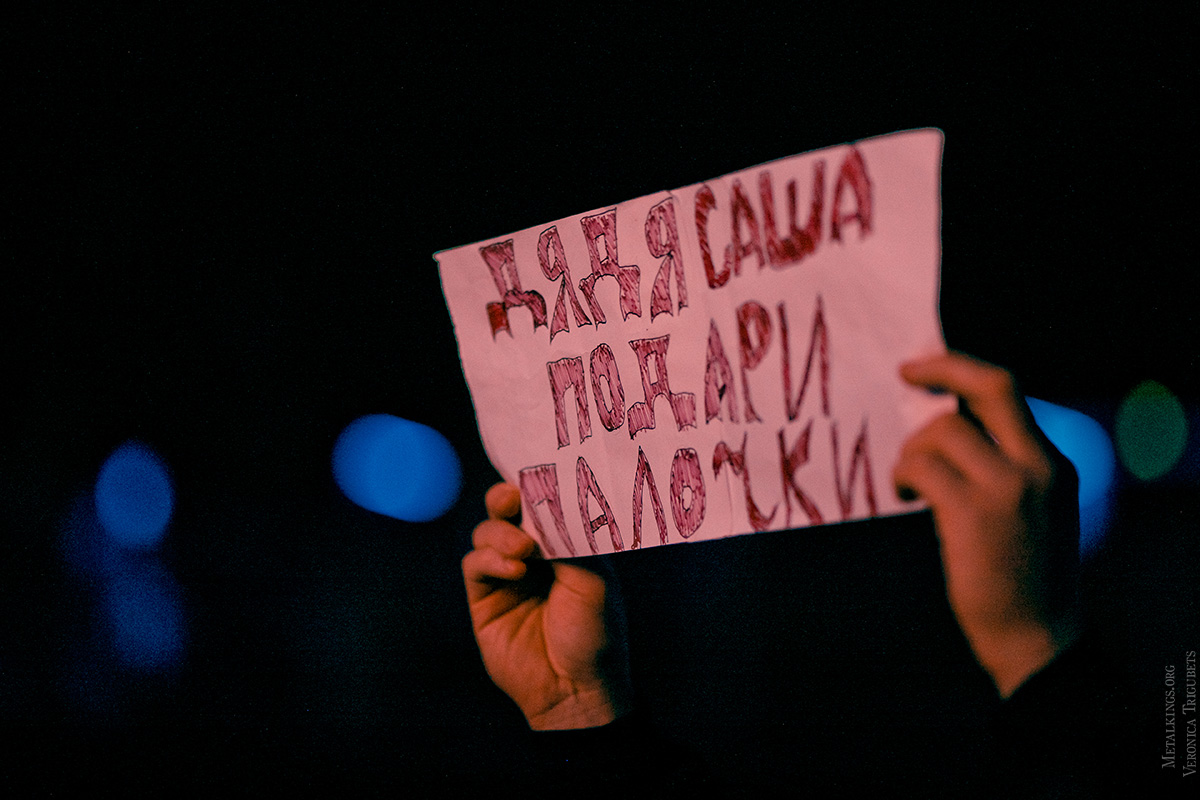 ДЯДЯ САША
ПОДАРИ
ПАЛОЧКИ
METALKINGS.ORG
VERONICA TRIGUBETS